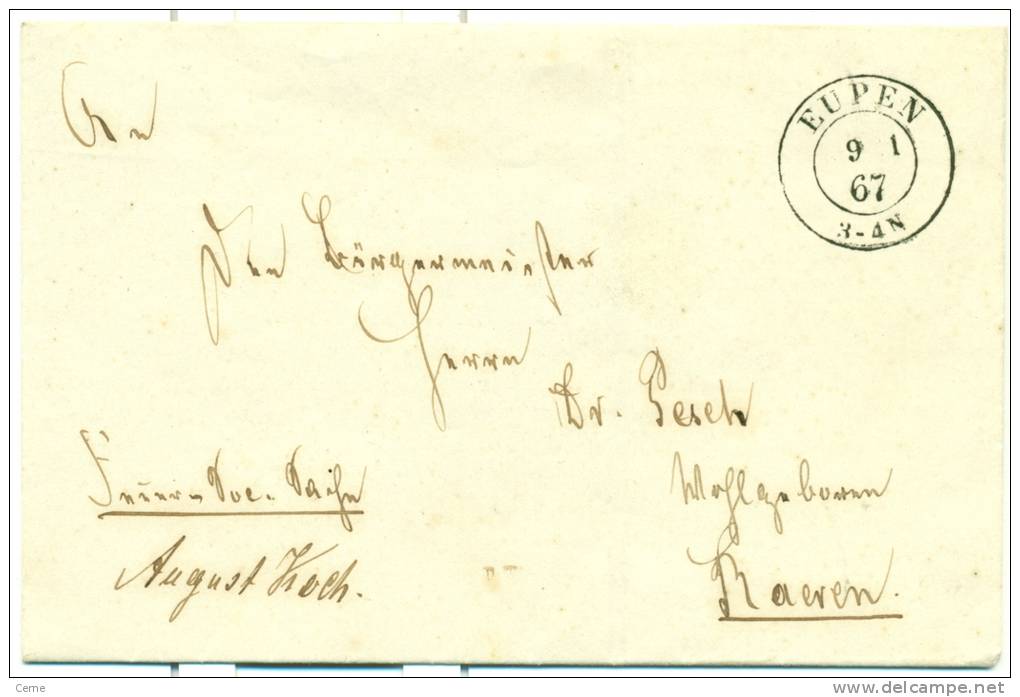 An
EUPEN
9 1
67
3-4N
den Bürgermeister
Herrn
Dr. Pesch
Feuer-Soc. Sache
Wohlgeboren
August Koch.
Raeren.
Ceme
www.delcampe.net